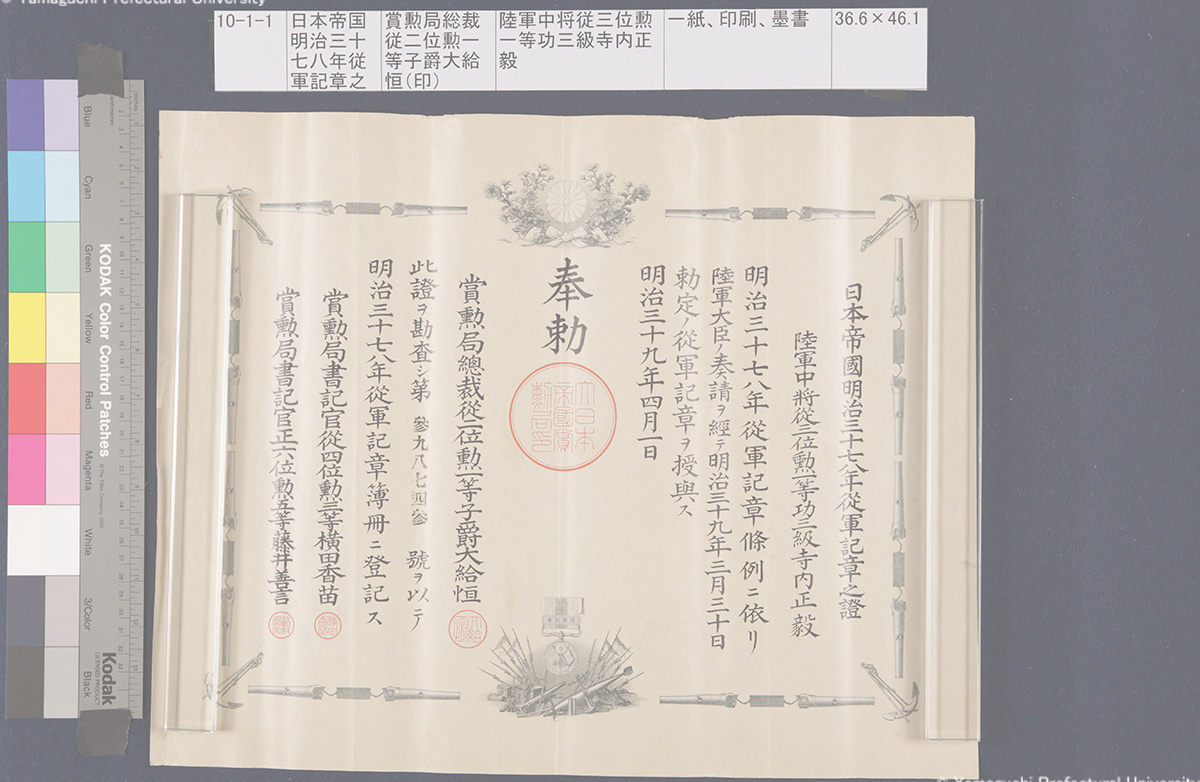 © Yamaguchi Prefectural University
10-1-1
日本帝国
明治三十
七八年従
軍記章之
賞勲局総裁
従二位勲一
等子爵大給
恒(印)
陸軍中将従三位勲
一等功三級寺内正
毅
一紙、印刷、墨書
36.6×46.1
日本帝國明治三十七八年從軍記章之證
陸軍中將從三位勲一等功三級寺内正毅
明治三十七八年從軍記章條例ニ依リ
陸軍大臣ノ奏請ヲ經テ明治三十九年三月三十日
勅定ノ從軍記章ヲ授與ス
明治三十九年四月一日
奉勅
大日本
帝國賞
勲局印
賞勲局總裁從二位勲一等子爵大給恒
此證ヲ勘査シ第參九八七四參號ヲ以テ
明治三十七八年從軍記章簿冊ニ登記ス
賞勲局書記官從四位勲三等横田香苗
賞勲局書記官正六位勲五等藤井善言
KODAK Color Control Patches
© The Tiffen Company, 2000
Kodak
LICENSED PRODUCT
Blue
Cyan
Green
Yellow
Red
Magenta
White
3/Color
Black
© Yamaguchi Prefectural University